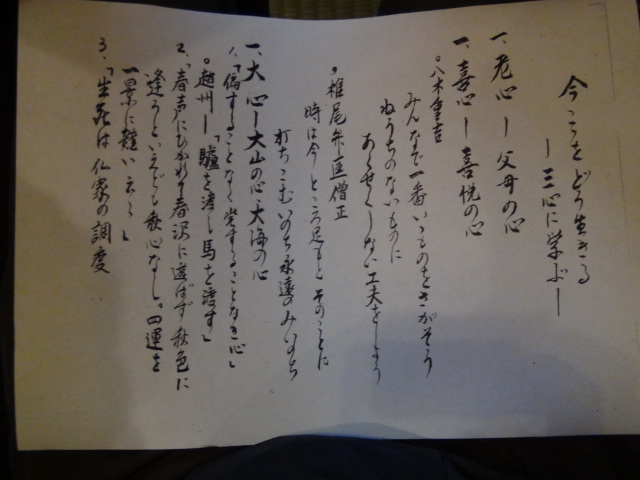 今ここをどう生きる
―三心に学ぶ―
一、老心―父母の心
一、喜心―喜悦の心
○八木重吉
みんなで一番いいものをさがそう
ねうちのないものに
あくせくしない工夫をしよう
○椎尾弁匡僧正
時は今 ところ足もと そのことに
打ちこむいのち永遠のみいのち
一、大心―大山の心・大海の心
1、「偏することなく党することなき心」
○趙州―「驢を渡し馬を渡す」
2、「春声にひかれて春沢に遊ばず秋色に
逢うといえども秋心なし。四運を
一景に競い云々」
3、「生死は仏家の調度